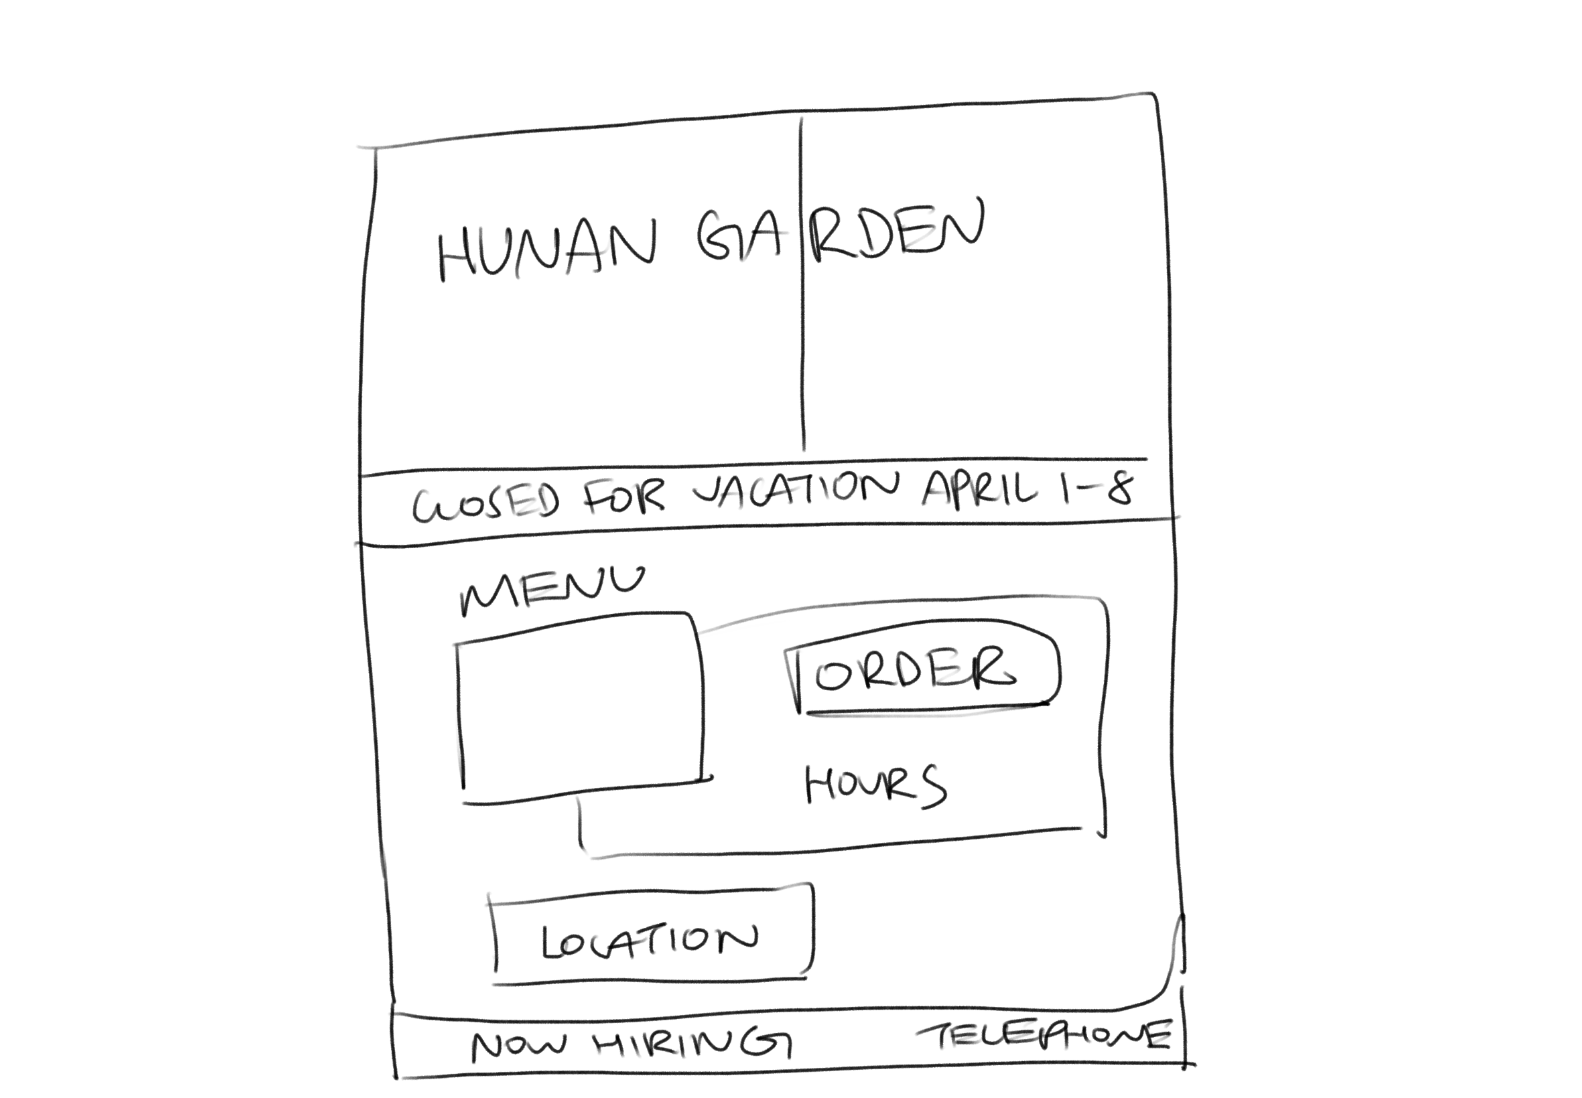 HUNAN GARDEN
CLOSED FOR VACATION APRIL 1-8
MENU
ORDER
HOURS
LOCATION
NOW HIRING
TELEPHONE